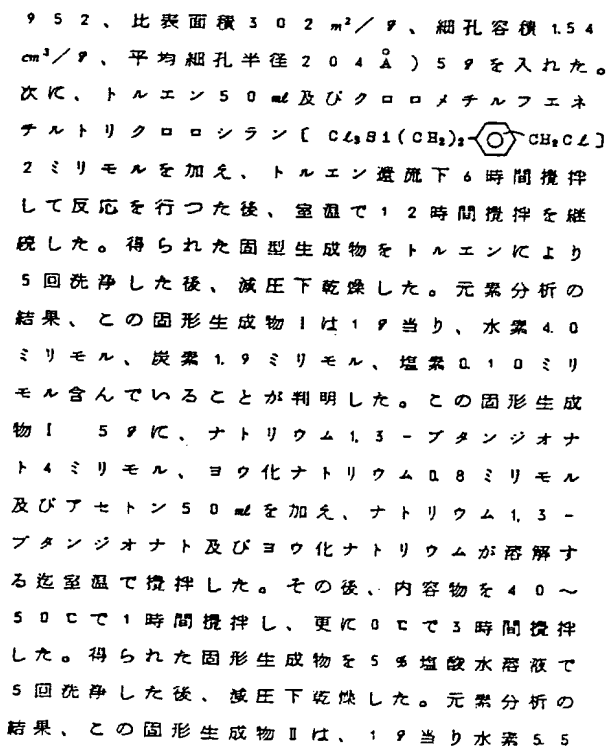 ９５２、比表面積３０２m²／g、細孔容積1.54
cm³／g、平均細孔半径２０４Å）５gを入れた。
次に、トルエン５０ml及びクロロメチルフエネ
チルトリクロロシラン〔Cl₃Si(CH₂)₂ CH₂Cl〕
２ミリモルを加え、トルエン還流下６時間攪拌
して反応を行つた後、室温で１２時間攪拌を継
続した。得られた固型生成物をトルエンにより
５回洗浄した後、減圧下乾燥した。元素分析の
結果、この固形生成物Ⅰは１g当り、水素4.0
ミリモル、炭素1.9ミリモル、塩素0.10ミリ
モル含んでいることが判明した。この固形生成
物Ⅰ　５gに、ナトリウム1,3－ブタンジオナ
ト４ミリモル、ヨウ化ナトリウム0.8ミリモル
及びアセトン５０mlを加え、ナトリウム1,3－
ブタンジオナト及びヨウ化ナトリウムが溶解す
る迄室温で攪拌した。その後、内容物を４０～
５０℃で１時間攪拌し、更に０℃で３時間攪拌
した。得られた固形生成物を５％塩酸水溶液で
５回洗浄した後、減圧下乾燥した。元素分析の
結果、この固形生成物Ⅱは、１g当り水素5.5